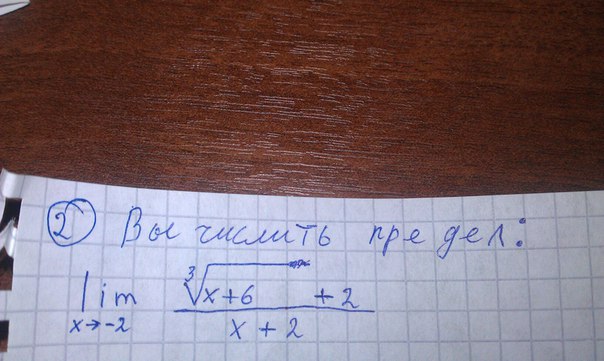 ② Вычислить предел:
lim x→-2 (∛(x+6) + 2)/(x + 2)